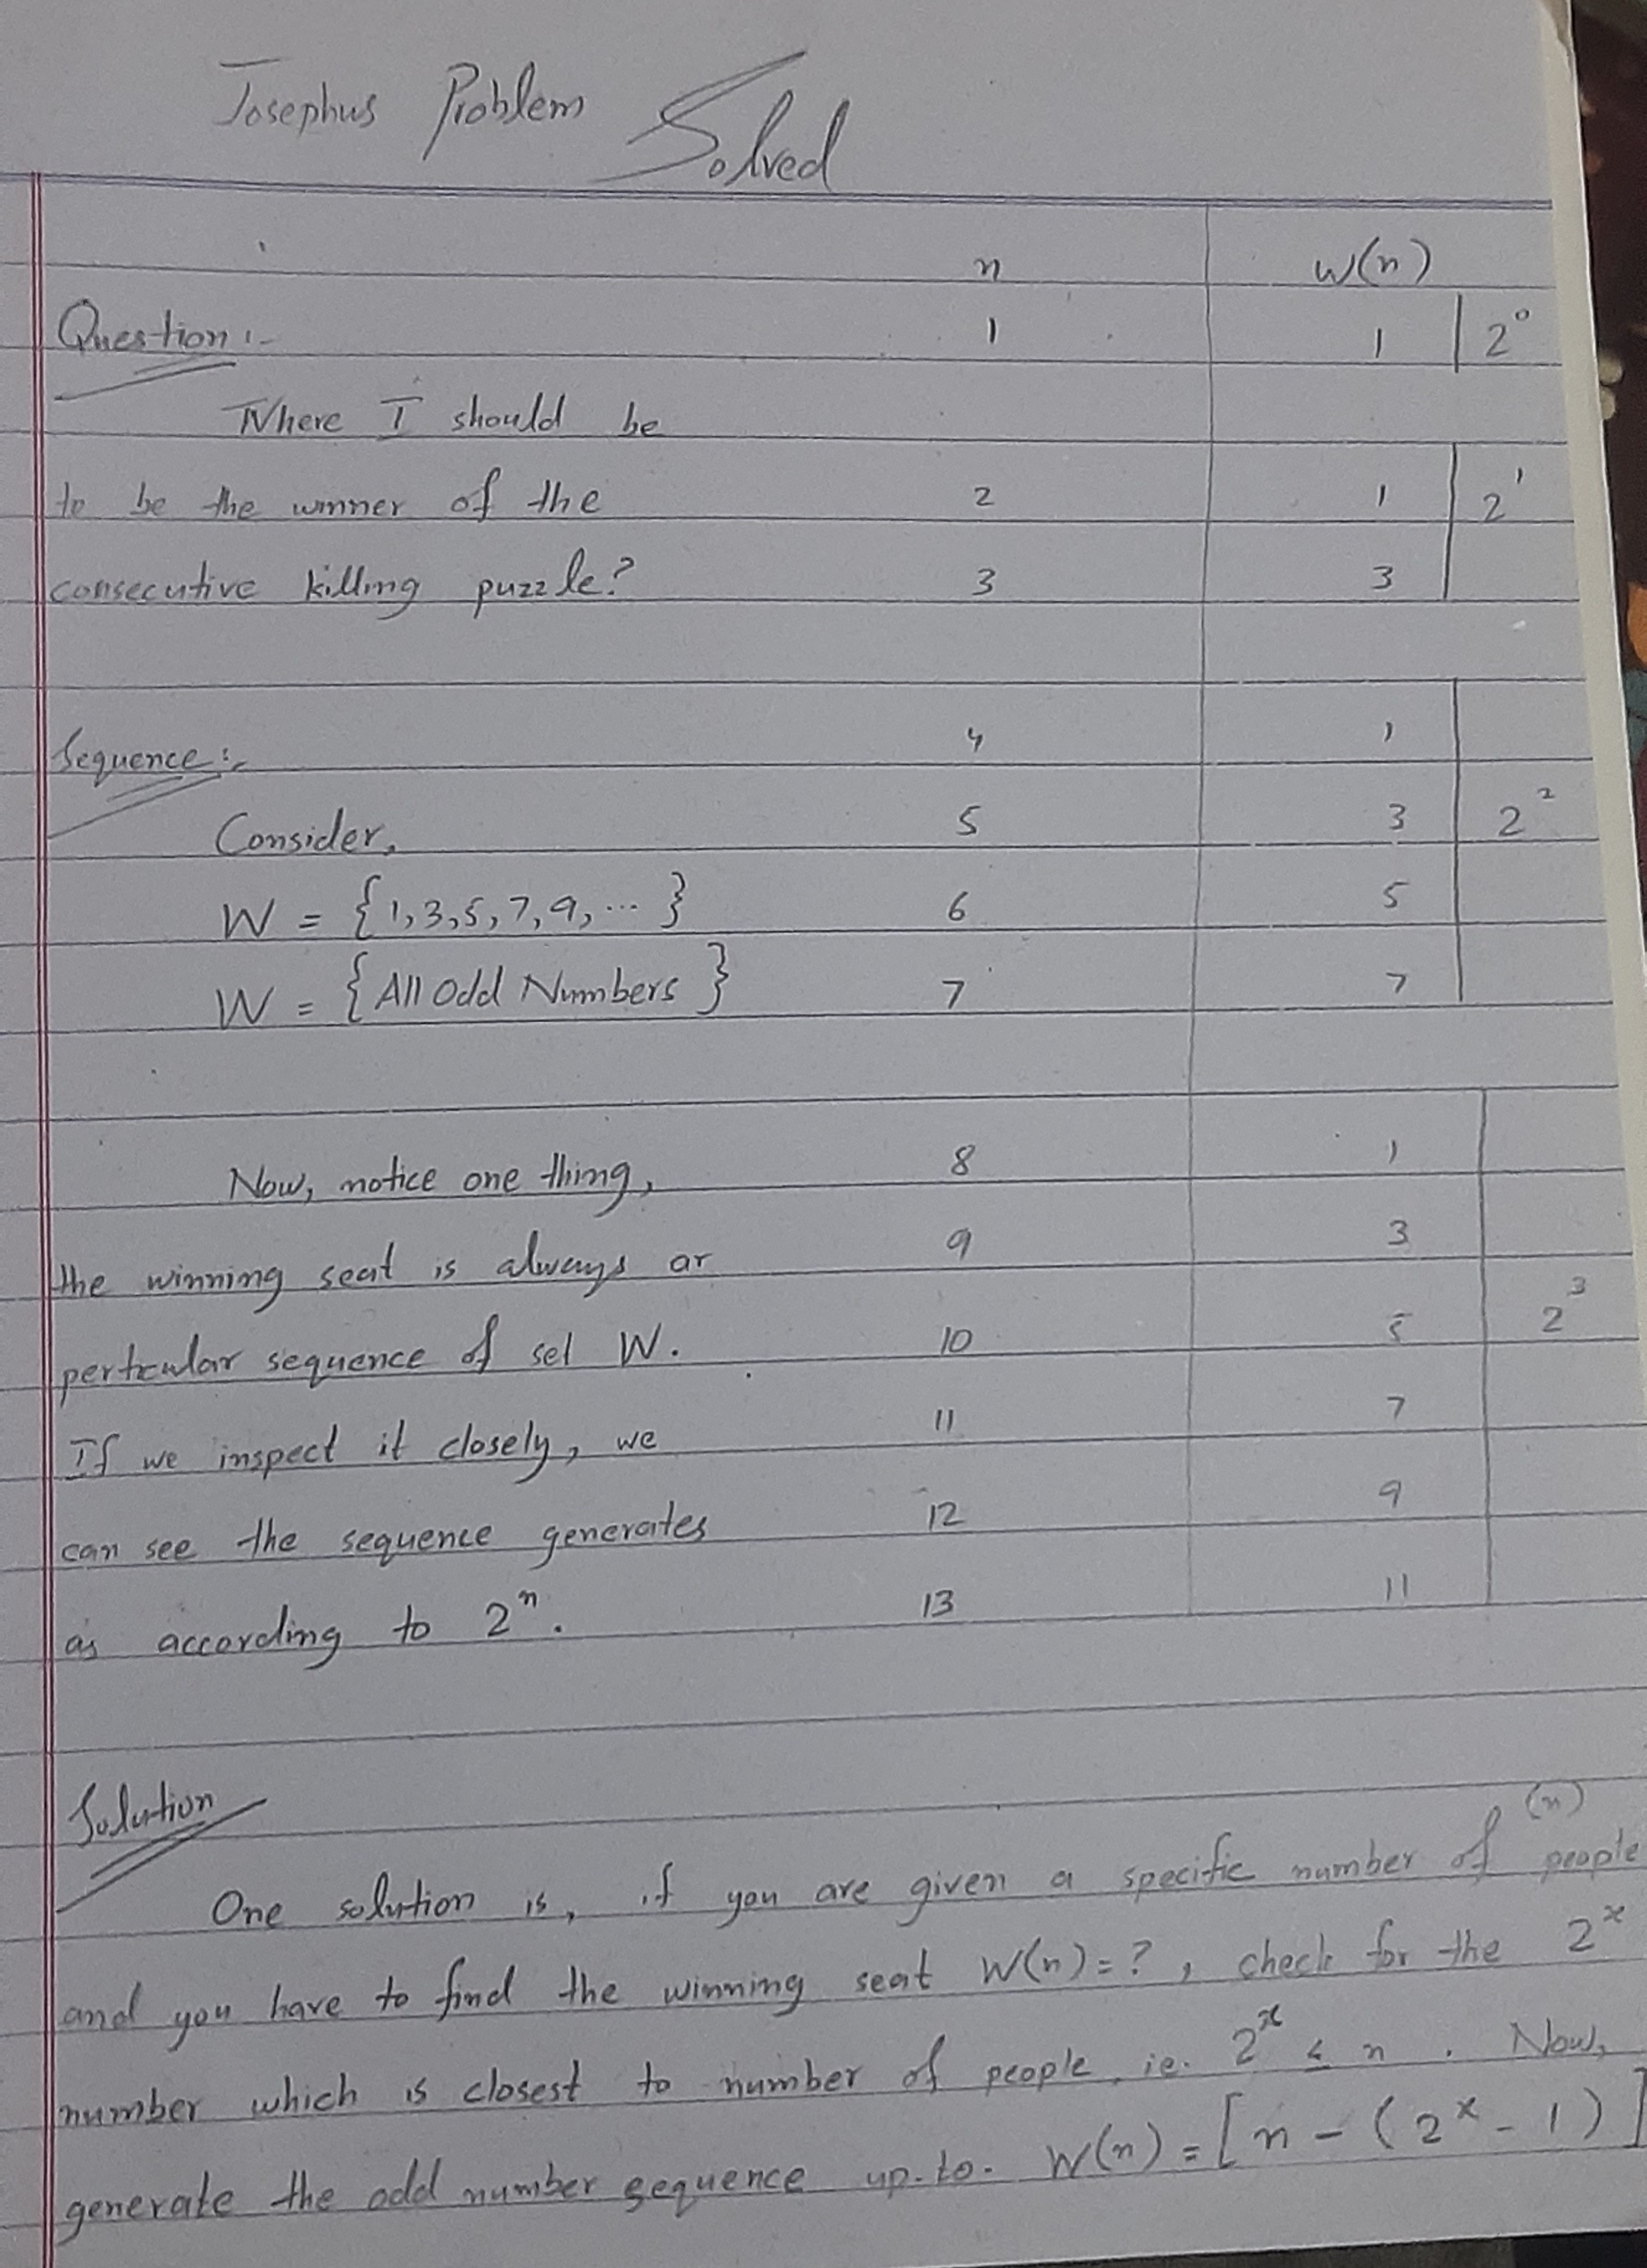 Josephus Problem Solved
n W(n)
Question:- 1 1 2⁰
Where I should be
to be the winner of the 2 1 2¹
consecutive killing puzzle? 3 3
Sequence:- 4 1
Consider, 5 3 2²
W = {1,3,5,7,9,...} 6 5
W = {All Odd Numbers} 7 7
Now, notice one thing, 8 1
the winning seat is always ar 9 3
perticular sequence of set W. 10 5 2³
If we inspect it closely, we 11 7
can see the sequence generates 12 9
as according to 2ⁿ. 13 11
Solution
One solution is, if you are given a specific number of (n) people
and you have to find the winning seat W(n)=?, check for the 2ˣ
number which is closest to number of people, ie. 2ˣ ≤ n. Now,
generate the odd number sequence up-to- W(n) = [n - (2ˣ - 1)]